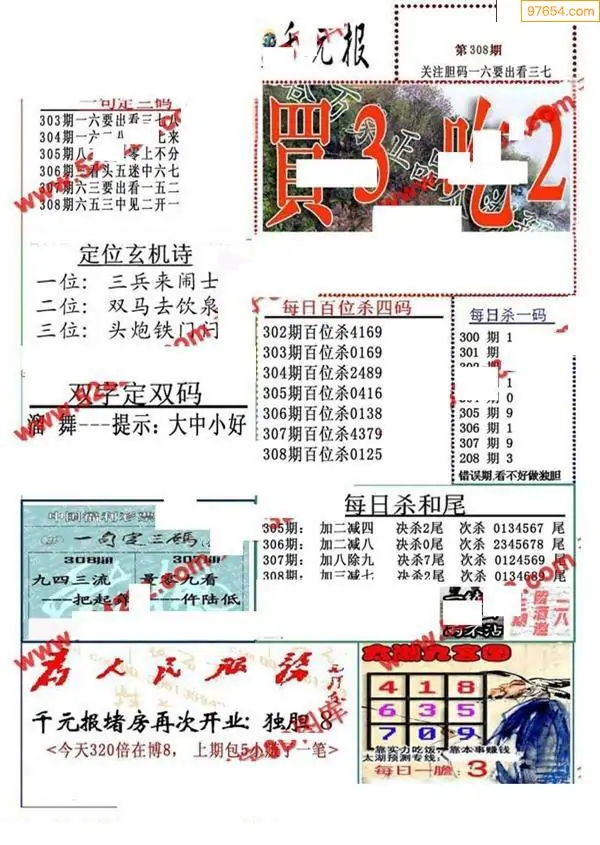 97654.com
千元报
第308期
关注胆码一六要出看三七
一句定三码
303期一六要出看三七八
304期一六二
七来
305期八
零上不分
306期
看头五迷中六七
307期六三要出看一五二
308期六五三中见二开一
買3吃2
定位玄机诗
一位: 三兵来闹士
二位: 双马去饮泉
三位: 头炮铁门闩
双字定双码
溜 舞---提示: 大中小好
每日百位杀四码
302期百位杀4169
303期百位杀0169
304期百位杀2489
305期百位杀0416
306期百位杀0138
307期百位杀4379
308期百位杀0125
每日杀一码
300 期 1
301 期
302 期
1
0
305 期 9
306 期 1
307 期 9
208 期 3
错误期,看不好做独胆
中国福利彩票
一句定三码
308期
九四三流
——把起
307期
量零九看
——仵陆低
每日杀和尾
305期: 加二减四 决杀2尾 次杀 0134567 尾
306期: 加二减八 决杀0尾 次杀 2345678 尾
307期: 加八除九 决杀7尾 次杀 0124569 尾
308期: 加三减七 决杀2尾 次杀 0134689 尾
为人民服务
千元报堵房再次开业: 独胆 8
<今天320倍在博8, 上期包5小赚了一笔>
太湖九宫图
4 1 8
6 3 5
7 0 9
靠实力吃饭,靠本事赚钱
太湖预测专线:
每日一胆: 3